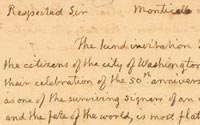 Respected Sir Monticello
The kind invitation
the citizens of the city of Washington
their celebration of the 50th annivers
as one of the surviving signers of an
and the fate of the world, is most flat